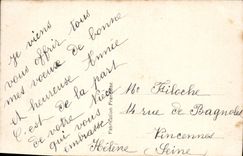 Je viens
vous offrir tous
mes voeux de bonne
et heureuse Année
C'est de la part
de votre Nièce
qui vous
embrasse
Hélène
Mr Filoche
14 rue de Bagnolet
Vincennes
Seine